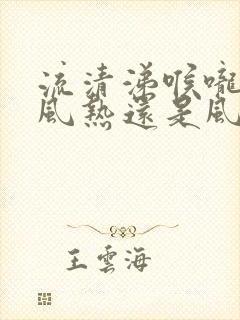 流清涕喉嚨
風熱還是風
王雲海